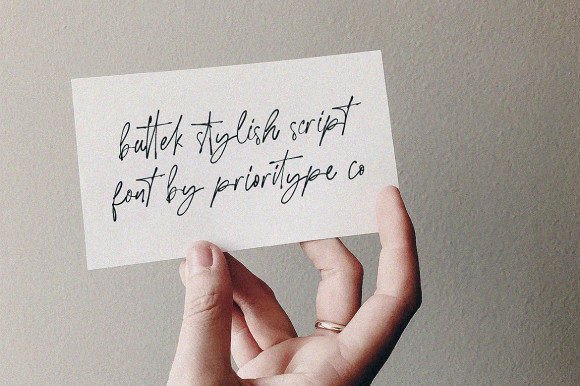 buttek stylish script
font by prioritype co